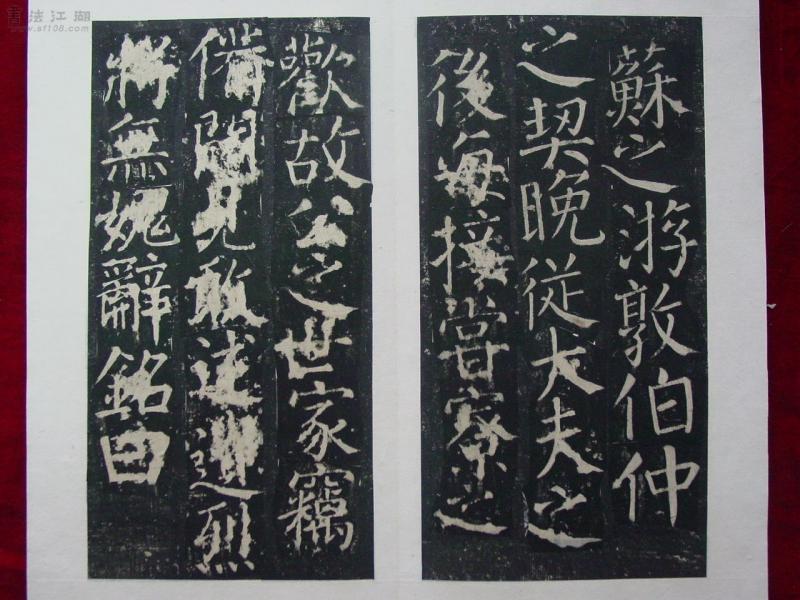 書法江湖
www.sf108.com
蘇之游敦伯仲
之契晚從大夫之
後每接當寮之
歡故公之世家竊
備聞見敢述遺烈
將無媿辭銘曰